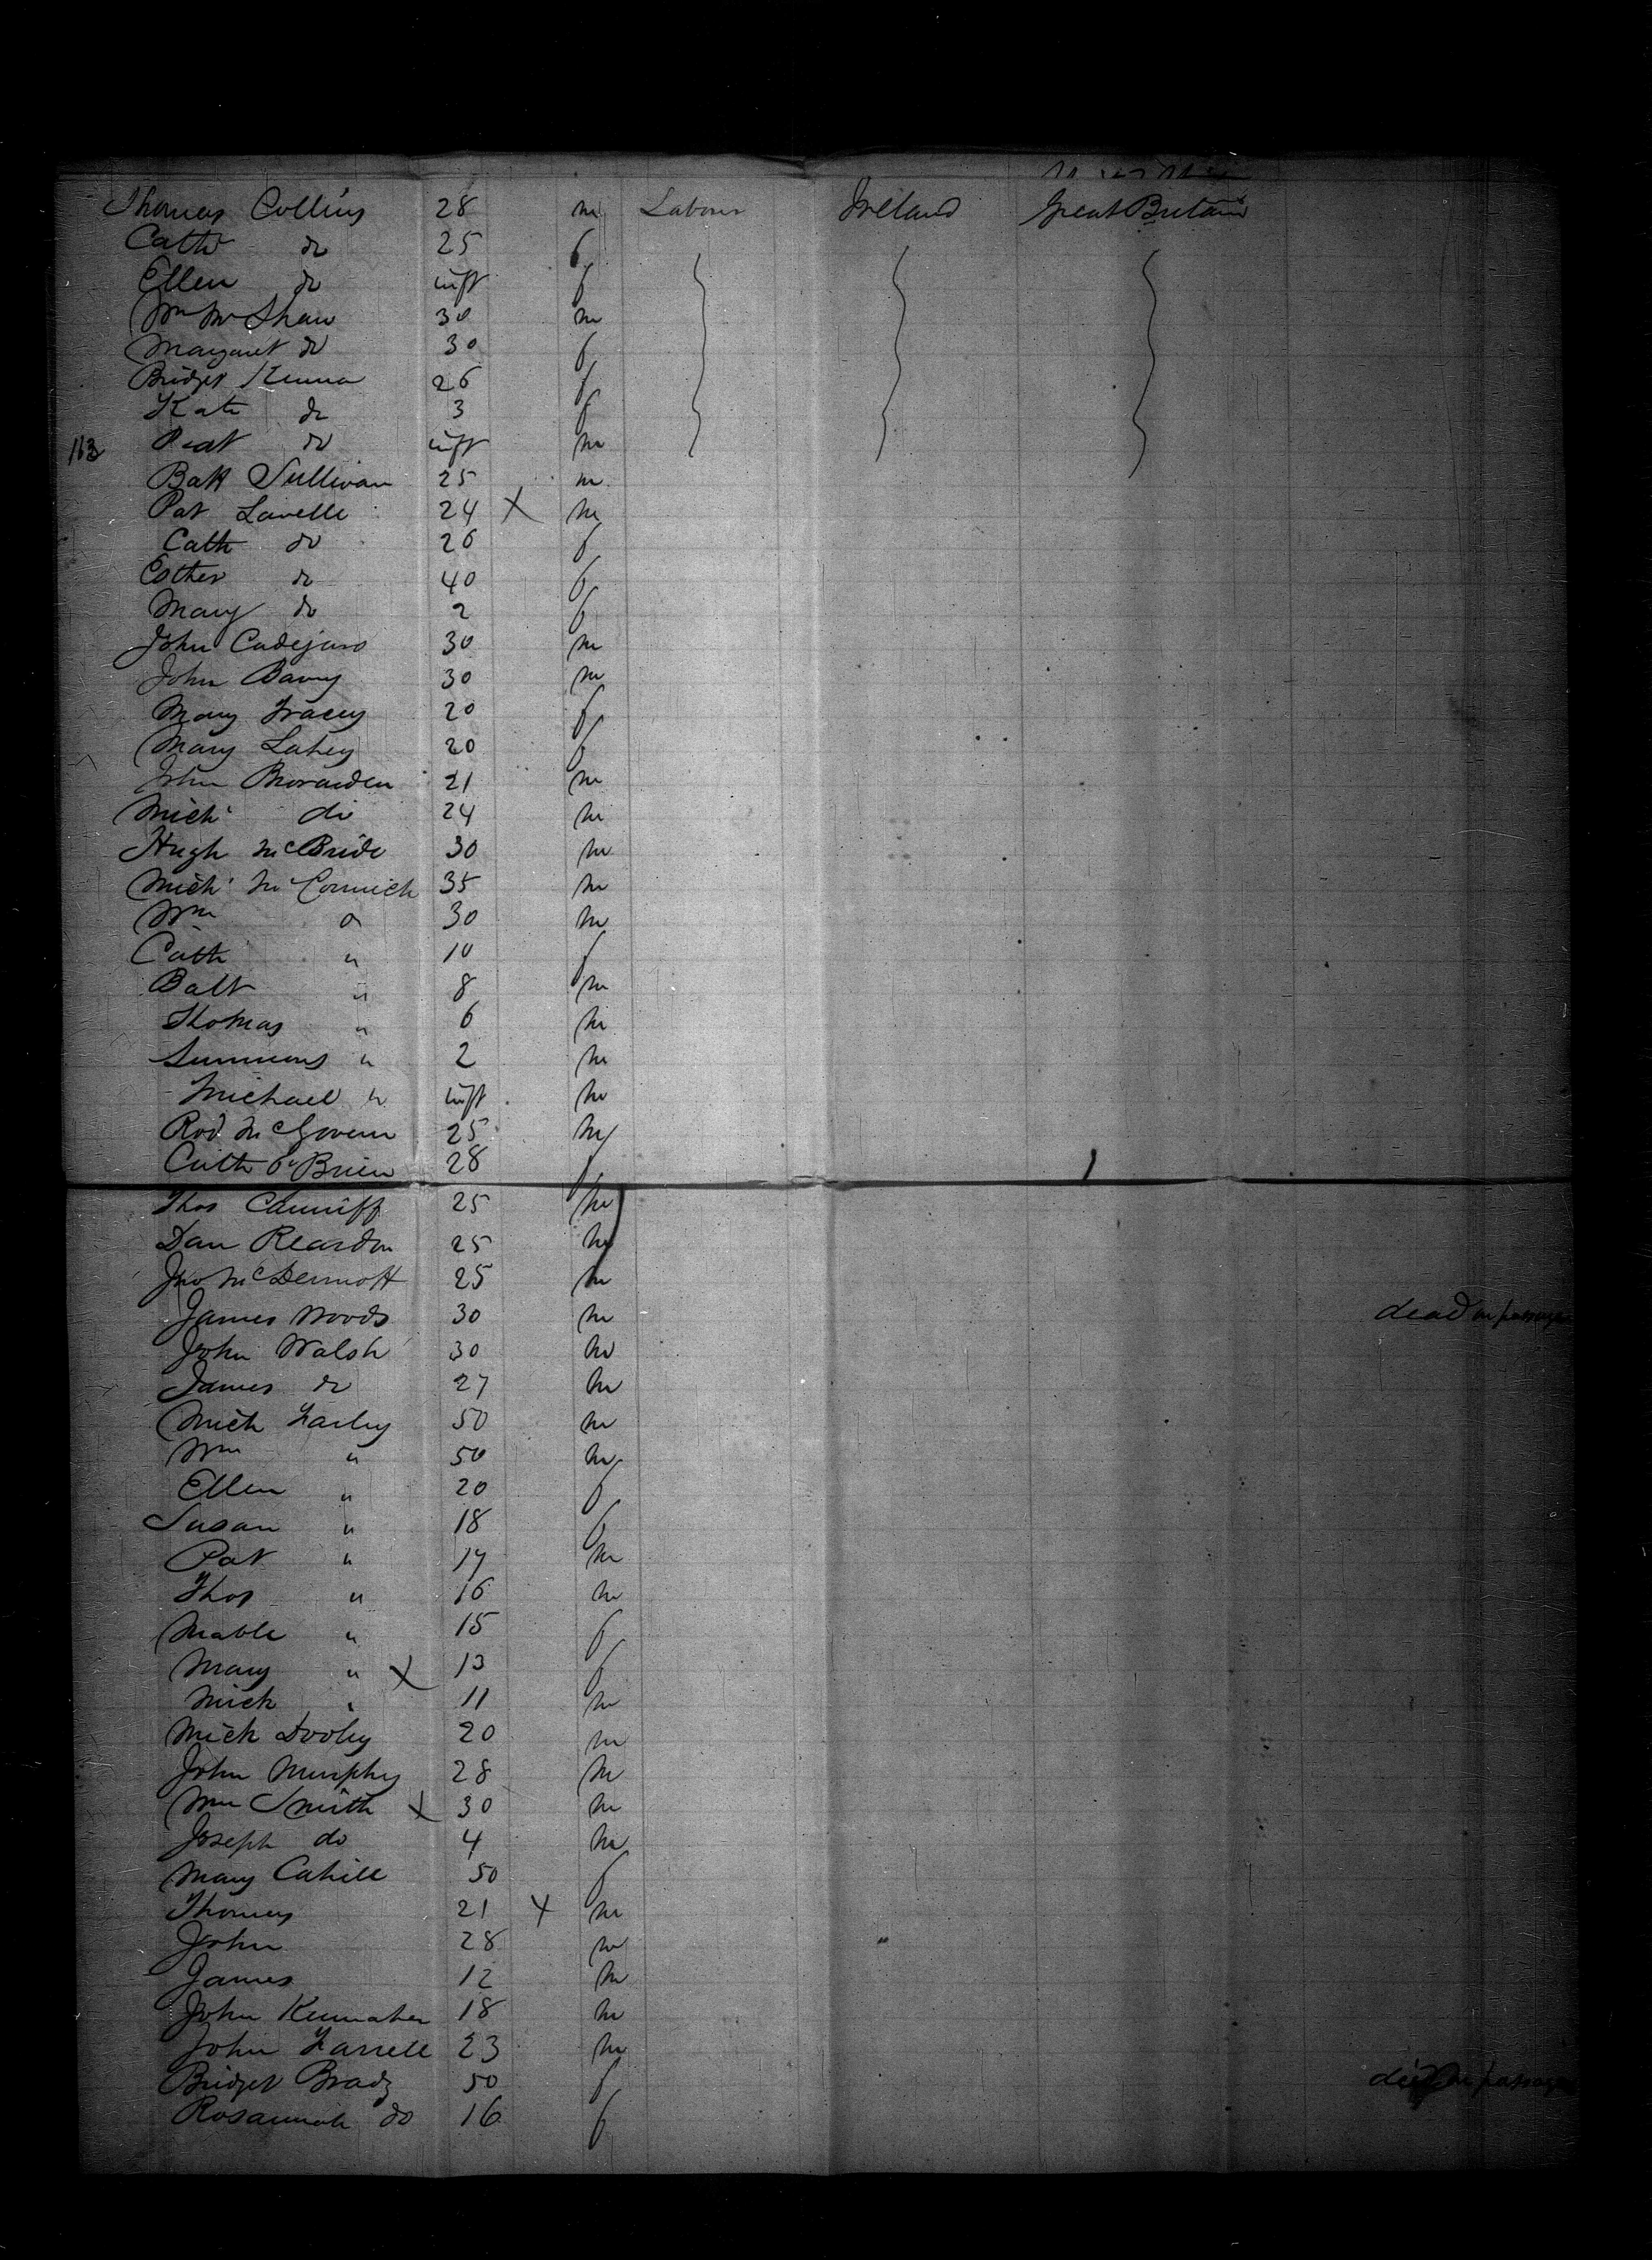 Thomas Collins 28 m Labour Ireland Great Britain
Cath do 25 f
Ellen do inft f
Wm McShaw 30 m
Margaret do 30 f
Bridget Kenna 26 f
Kate do 3 f
113 Pat do inft m
Batt Sullivan 25 m
Pat Lavelle 24 X m
Cath do 26 f
Esther do 40 f
Mary do 2 f
John 30 m
John Barry 30 m
Mary Tracey 20 f
Mary Lahey 20 f
John 21 m
Mich do 24 m
Hugh McBride 30 m
Mich McCormick 35 m
Wm " 30 m
Cath " 10 f
Batt " 8 m
Thomas " 6 m
" 2 m
Michael " inft m
Rod McGovern 25 m
Cath O'Brien 28 f
Thos Cunniff 25 m
Dan Reardon 25 m
Jno McDermott 25 m
James Woods 30 m dead on passage
John Walsh 30 m
James do 27 m
Mich Farley 50 m
Wm " 50 m
Ellen " 20 f
Susan " 18 f
Pat " 17 m
Thos " 16 m
Mable " 15 f
Mary " X 13 f
Mick " 11 m
Mick Dooley 20 m
John Murphy 28 m
Wm Smith X 30 m
Joseph do 4 m
Mary Cahill 50 f
Thomas 21 X m
John 28 m
James 12 m
John 18 m
John Farrell 23 m
Bridget Brady 50 f died on passage
Rosannah do 16 f